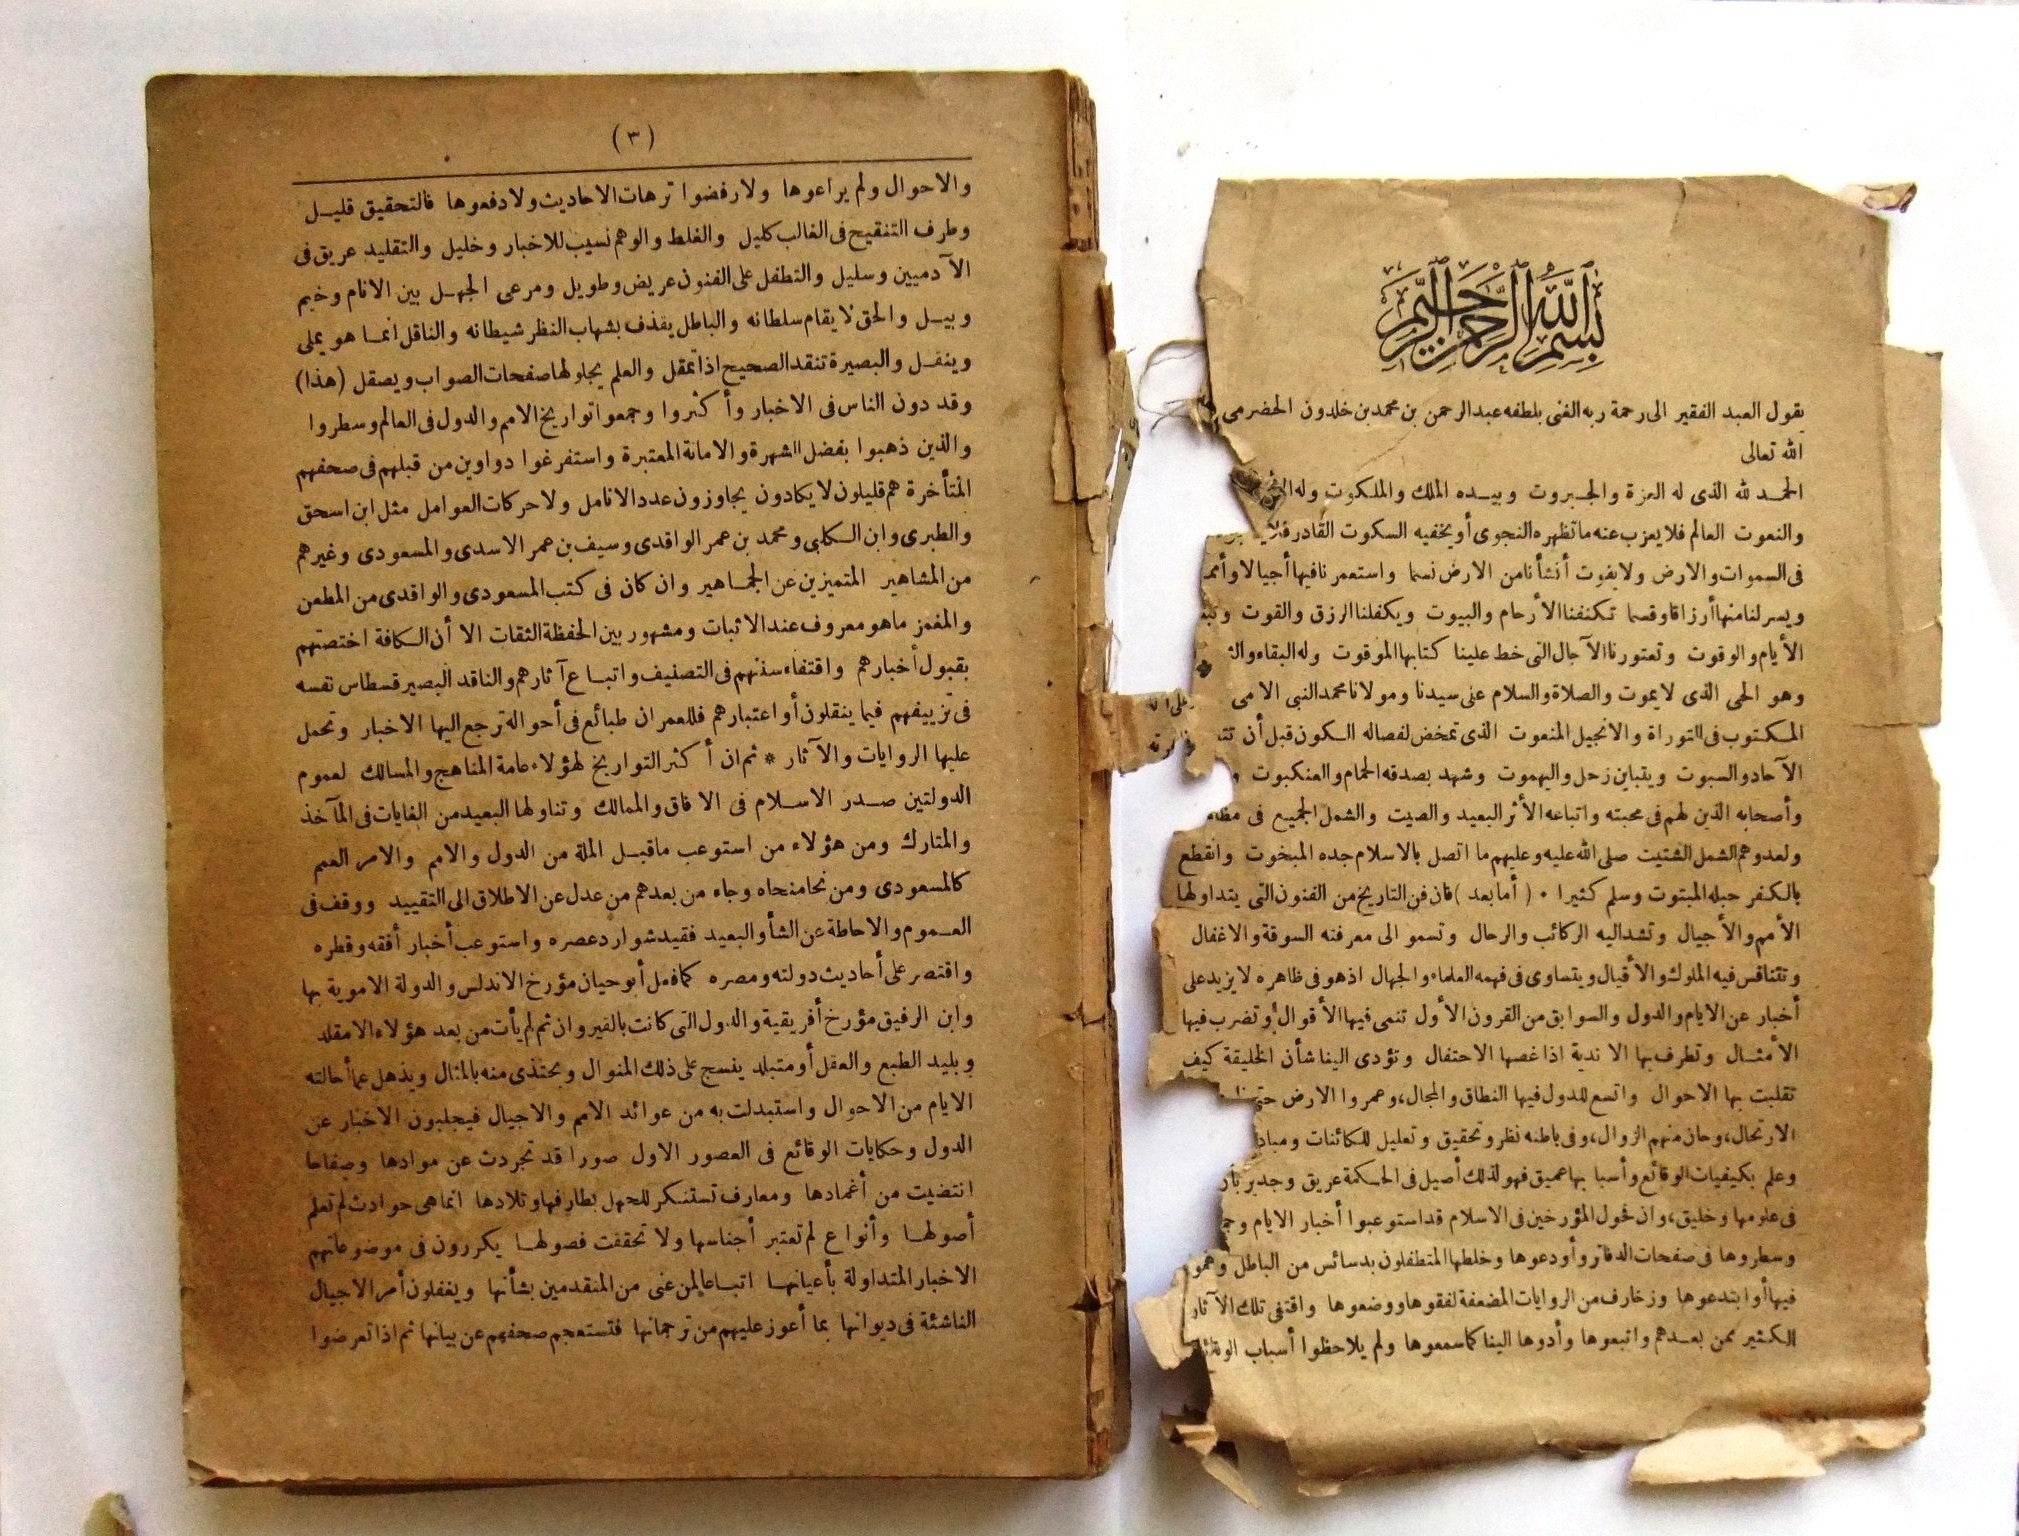 بسم الله الرحمن الرحيم
يقول العبد الفقير الى رحمة ربه الغنى بلطفه عبد الرحمن بن محمد بن خلدون الحضرمى
الله تعالى
الحمد لله الذى له العزة والجبروت وبيده الملك والملكوت وله
والنعوت العالم فلا يعزب عنه ما تظهره النجوى أو يخفيه السكوت القادر فلا
فى السموات والارض ولا يفوت أنشأنا من الارض نسما واستعمرنا فيها أجيالا وأمما
ويسر لنا منها أرزاقا وقسما تكنفنا الأرحام والبيوت ويكفلنا الرزق والقوت
الأيام والوقوت وتعتورنا الآجال التى خط علينا كتابها الموقوت وله البقاء
وهو الحى الذى لا يموت والصلاة والسلام على سيدنا ومولانا محمد النبى الامى
المكتوب فى التوراة والانجيل المنعوت الذى تمخض لفصاله الكون قبل أن
الآحاد والسبوت ويتباين زحل واليهموت وشهد بصدقه الحمام والعنكبوت
وأصحابه الذين لهم فى محبته واتباعه الأثر البعيد والصيت والشمل الجميع فى
ولعدوهم الشمل الشتيت صلى الله عليه وعليهم ما اتصل بالاسلام جده المبخوت وانقطع
بالكفر حبله المبتوت وسلم كثيرا • (أما بعد) فان فن التاريخ من الفنون التى يتداولها
الأمم والأجيال وتشد اليه الركائب والرحال وتسمو الى معرفته السوقة والاغفال
وتتنافس فيه الملوك والأقيال ويتساوى فى فهمه العلماء والجهال اذ هو فى ظاهره لا يزيد على
أخبار عن الايام والدول والسوابق من القرون الأول تنمى فيها الأقوال وتضرب فيها
الأمثال وتطرف بها الاندية اذا غصها الاحتفال وتؤدى الينا شأن الخليقة كيف
تقلبت بها الاحوال واتسع للدول فيها النطاق والمجال، وعمروا الارض
الارتحال، وحان منهم الزوال، وفى باطنه نظر وتحقيق وتعليل للكائنات
وعلم بكيفيات الوقائع وأسبابها عميق فهو لذلك أصيل فى الحكمة عريق وجدير
فى علومها وخليق، وان فحول المؤرخين فى الاسلام قد استوعبوا أخبار الايام
وسطروها فى صفحات الدفاتر وأودعوها وخلطها المتطفلون بدسائس من الباطل وهموا
فيها أو ابتدعوها وزخارف من الروايات المضعفة لفقوها ووضعوها واقتفى تلك الآثار
الكثير ممن بعدهم واتبعوها وأدوها الينا كما سمعوها ولم يلاحظوا أسباب الوقائع
(٣)
والاحوال ولم يراعوها ولا رفضوا ترهات الاحاديث ولا دفعوها فالتحقيق قليل
وطرف التنقيح فى الغالب كليل والغلط والوهم نسيب للاخبار وخليل والتقليد عريق فى
الآدميين وسليل والتطفل على الفنون عريض وطويل ومرعى الجهل بين الانام وخيم
وبيل والحق لا يقام سلطانه والباطل يقذف بشهاب النظر شيطانه والناقل انما هو يملى
وينقل والبصيرة تنقد الصحيح اذا تمقل والعلم يجلو لها صفحات الصواب ويصقل (هذا)
وقد دون الناس فى الاخبار وأكثروا وجمعوا تواريخ الامم والدول فى العالم وسطروا
والذين ذهبوا بفضل الشهرة والامانة المعتبرة واستفرغوا دواوين من قبلهم فى صحفهم
المتأخرة هم قليلون لا يكادون يجاوزون عدد الانامل ولا حركات العوامل مثل ابن اسحق
والطبرى وابن الكلبى ومحمد بن عمر الواقدى وسيف بن عمر الاسدى والمسعودى وغيرهم
من المشاهير المتميزين عن الجماهير وان كان فى كتب المسعودى والواقدى من المطعن
والمغمز ما هو معروف عند الاثبات ومشهور بين الحفظة الثقات الا أن الكافة اختصتهم
بقبول أخبارهم واقتفاء سننهم فى التصنيف واتباع آثارهم والناقد البصير قسطاس نفسه
فى تزييفهم فيما ينقلون أو اعتبارهم فللعمران طبائع فى أحواله ترجع اليها الاخبار وتحمل
عليها الروايات والآثار * ثم ان أكثر التواريخ لهؤلاء عامة المناهج والمسالك لعموم
الدولتين صدر الاسلام فى الافاق والممالك وتناولها البعيد من الغايات فى المآخذ
والمتارك ومن هؤلاء من استوعب ما قبل الملة من الدول والامم والامر العمم
كالمسعودى ومن نحا منحاه وجاء من بعدهم من عدل عن الاطلاق الى التقييد ووقف فى
العموم والاحاطة عن الشأو البعيد فقيد شوارد عصره واستوعب أخبار أفقه وقطره
واقتصر على أحاديث دولته ومصره كما فعل أبو حيان مؤرخ الاندلس والدولة الاموية بها
وابن الرفيق مؤرخ أفريقية والدول التى كانت بالقيروان ثم لم يأت من بعد هؤلاء الا مقلد
وبليد الطبع والعقل أو متبلد ينسج على ذلك المنوال ويحتذى منه بالمثال ويذهل عما أحالته
الايام من الاحوال واستبدلت به من عوائد الامم والاجيال فيجلبون الاخبار عن
الدول وحكايات الوقائع فى العصور الاول صورا قد تجردت عن موادها وصفاحا
انتضيت من أغمادها ومعارف تستنكر للجهل بطارفها وتلادها انما هى حوادث لم تعلم
أصولها وأنواع لم تعتبر أجناسها ولا تحققت فصولها يكررون فى موضوعاتهم
الاخبار المتداولة بأعيانها اتباعا لمن عنى من المتقدمين بشأنها ويغفلون أمر الاجيال
الناشئة فى ديوانها بما أعوز عليهم من ترجمانها فتستعجم صحفهم عن بيانها ثم اذا تعرضوا